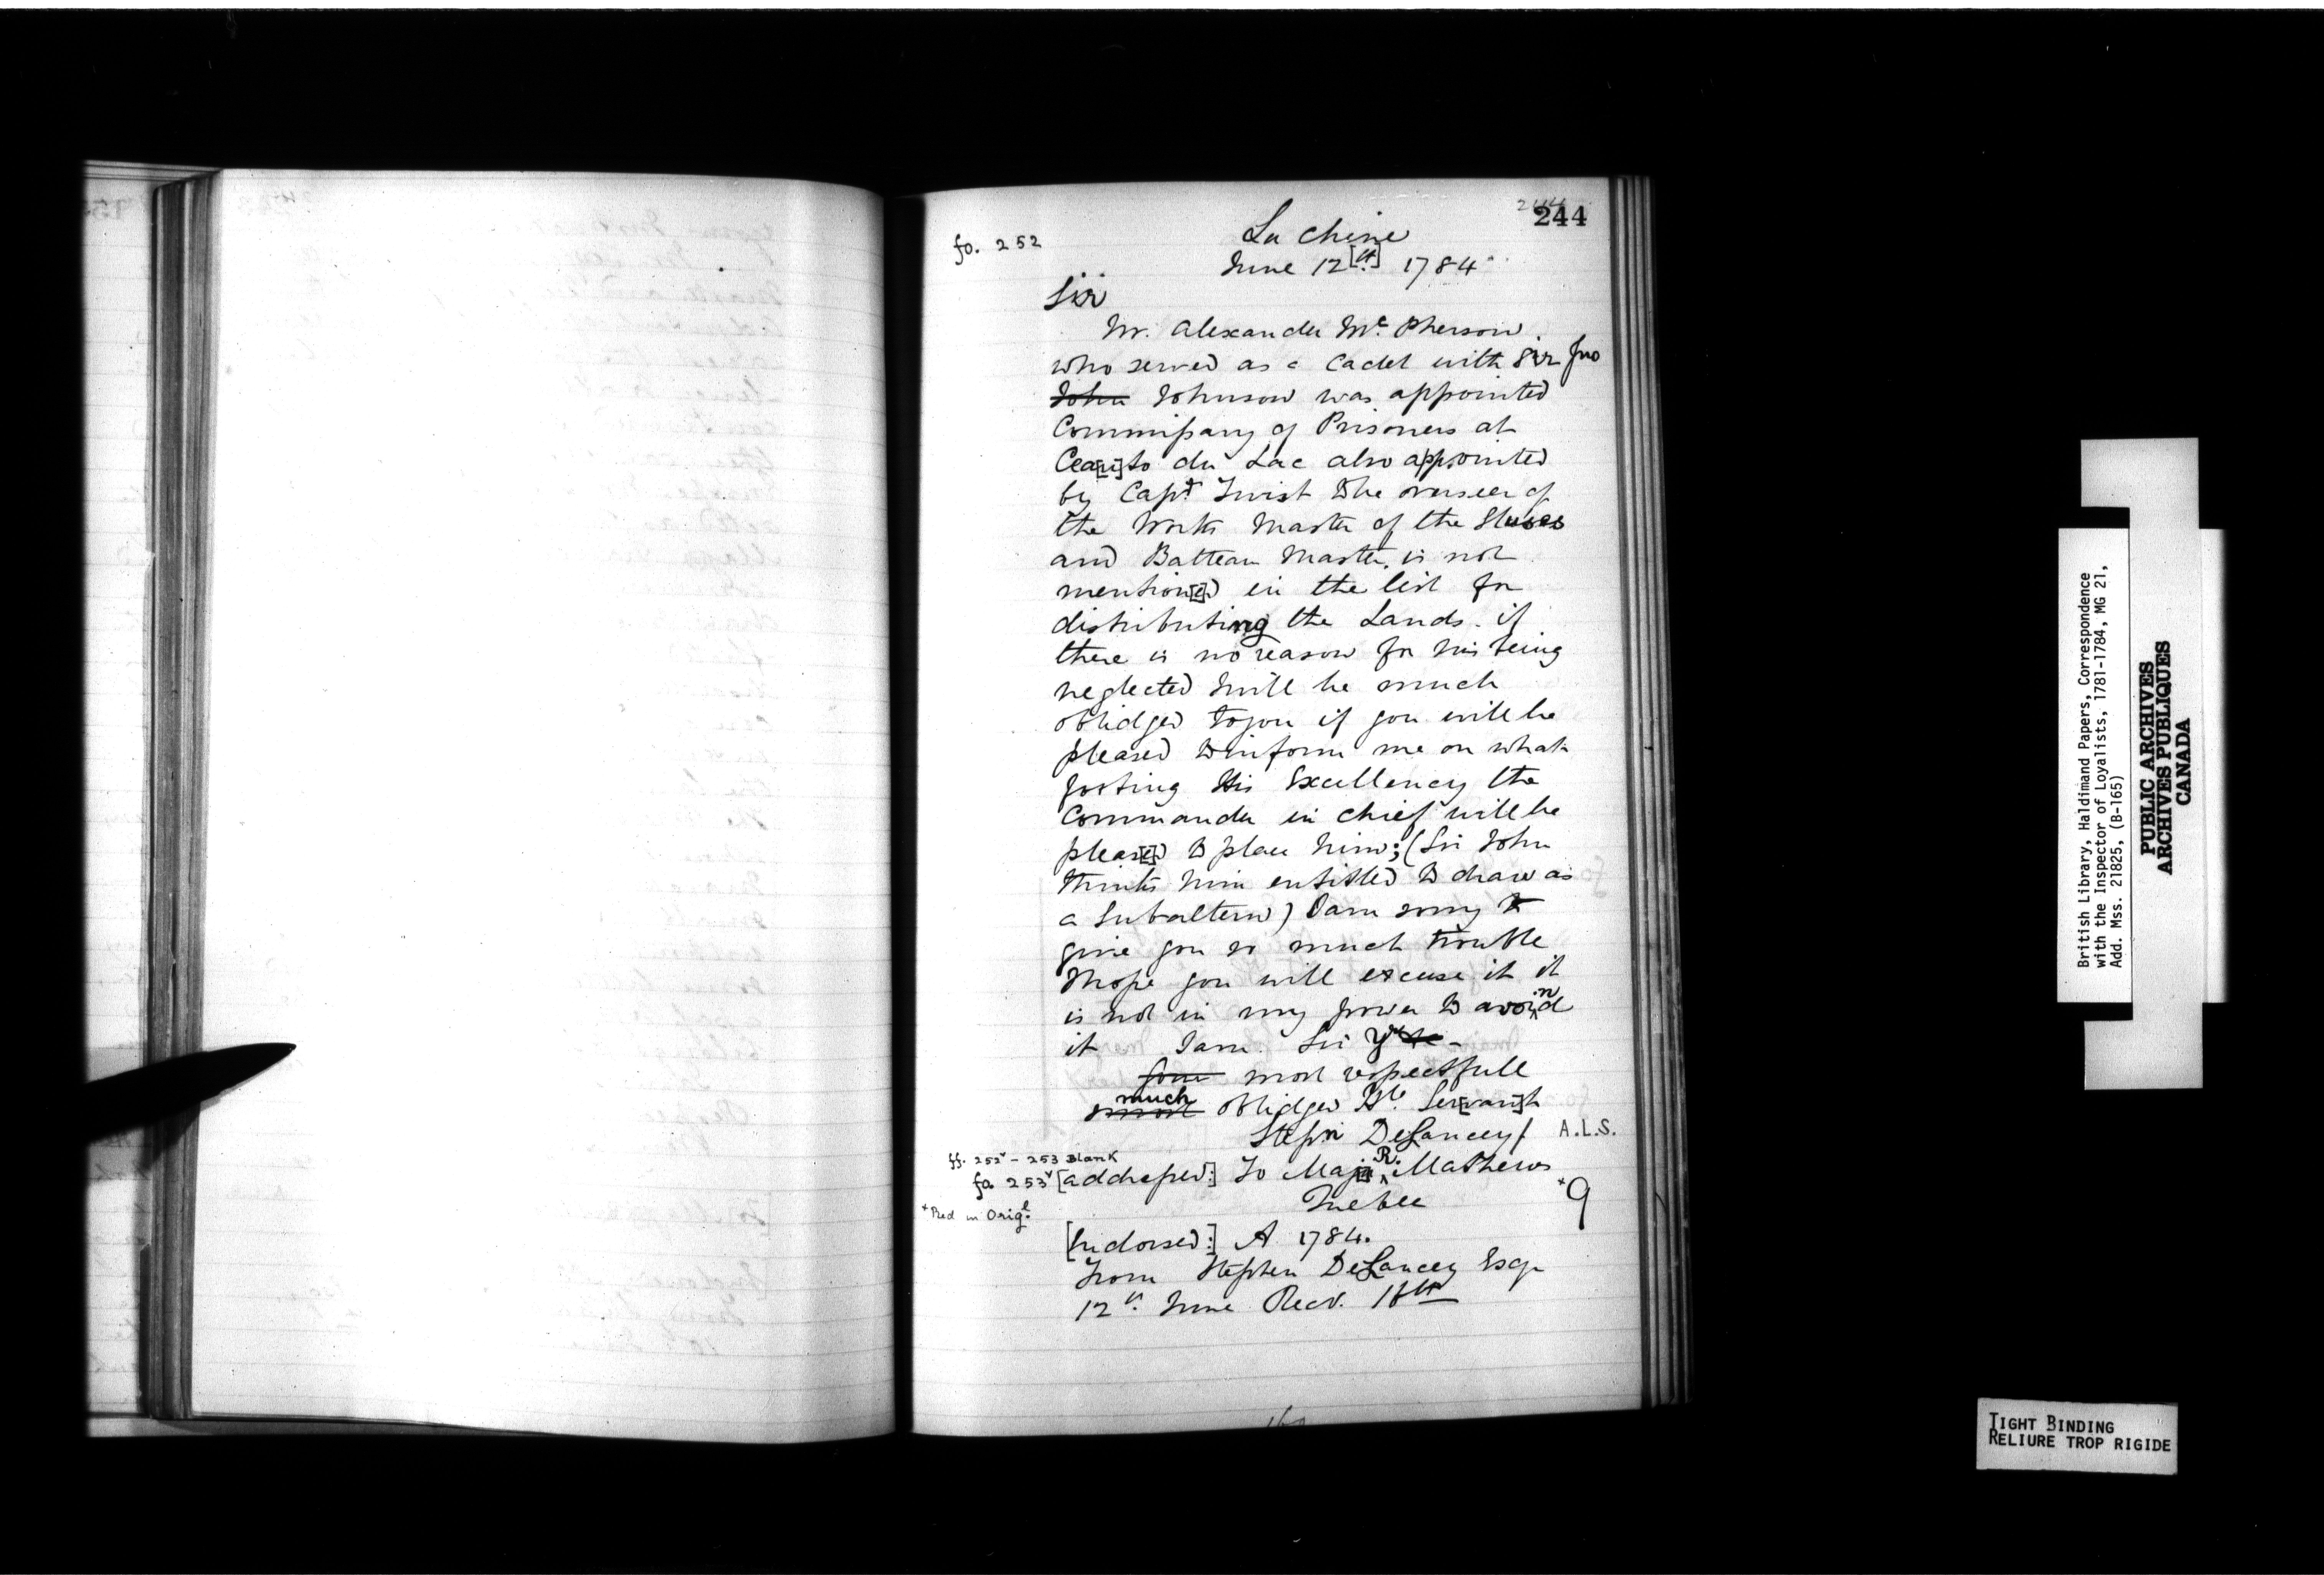 244
fo. 252
La Chine
June 12[th] 1784
Sir
Mr. Alexander Mc. Pherson
who served as a Cadet with Sir Jno
John Johnson was appointed
Commissary of Prisoners at
Cea[u]to du Lac also appointed
by Capt. Twist the overseer of
the Works Master of the Sluses
and Batteau Master, is not
mention[e]d in the list for
distributing the Lands. if
there is no reason for his being
neglected I will be much
oblidged to you if you will be
pleased to inform me on what
footing His Excellency the
Commander in Chief will be
pleas[e]d to place him; (Sir John
thinks him entitled to draw as
a Subaltern) I am sorry to
give you so much trouble
I hope you will excuse it it
is not in my power to avoid
it I am Sir Yr
Your most respectfull
much oblidged Hle. Ser[van]t
Stepn DeLancey/ A.L.S.
ff. 252v - 253 Blank
fo. 253v [addressed:] To Majr R. Mathews
Quebec
+9
+ Red in Origl.
[Endorsed:] A 1784.
From Stephen DeLancey Esqr
12th. June Recd. 18th
British Library, Haldimand Papers, Correspondence
with the Inspector of Loyalists, 1781-1784, MG 21,
Add. Mss. 21825, (B-165)
PUBLIC ARCHIVES
ARCHIVES PUBLIQUES
CANADA
TIGHT BINDING
RELIURE TROP RIGIDE